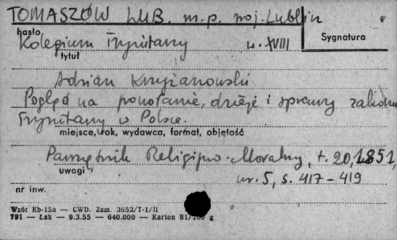 TOMASZÓW LUB. m.p. woj. Lublin
hasło
Sygnatura
Kolegium Trynitarzy w. XVIII
tytuł
Adrian Krzyżanowski
Pogląd na powołanie, dzieje i sprawy zakonu
Trynitarzy w Polsce.
miejsce, rok, wydawca, format, objętość
Pamiętnik Religijno-Moralny, t. 20, 1851,
uwagi
nr. 5, s. 417-419
nr inw.
Wzór Kb-15a — CWD. Zam. 3652/T-1/II
791 — Łak — 9.3.55 — 640.000 — Karton B1/ g